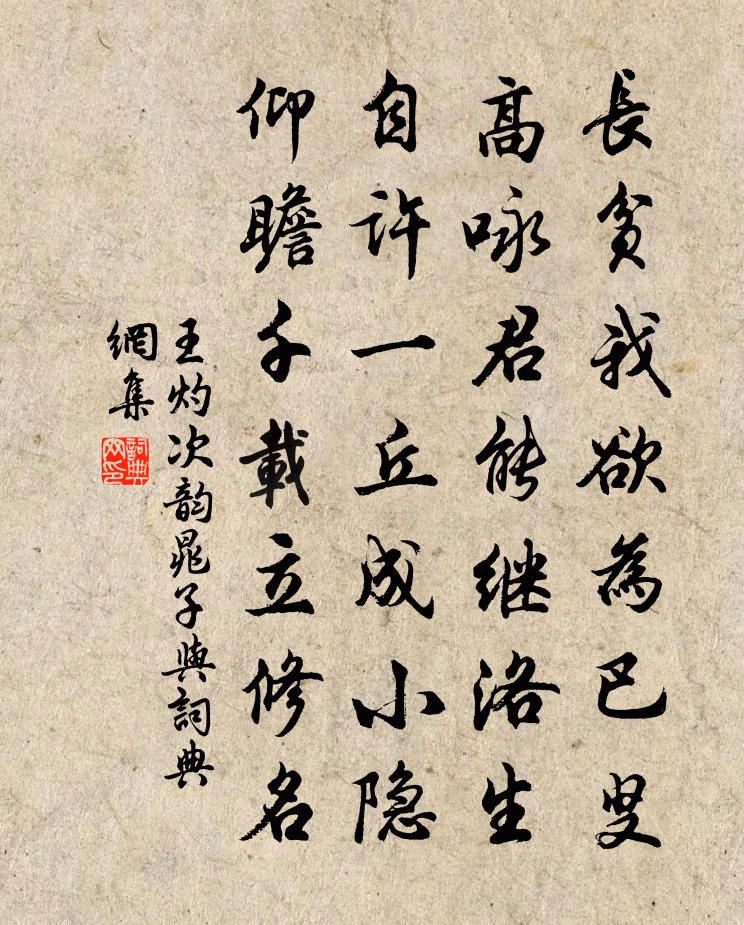 長貧我欲為巴叟
高咏君能继洛生
自许一丘成小隐
仰瞻千載立修名
王灼次韵晁子與詞典
網集
詞典
网印